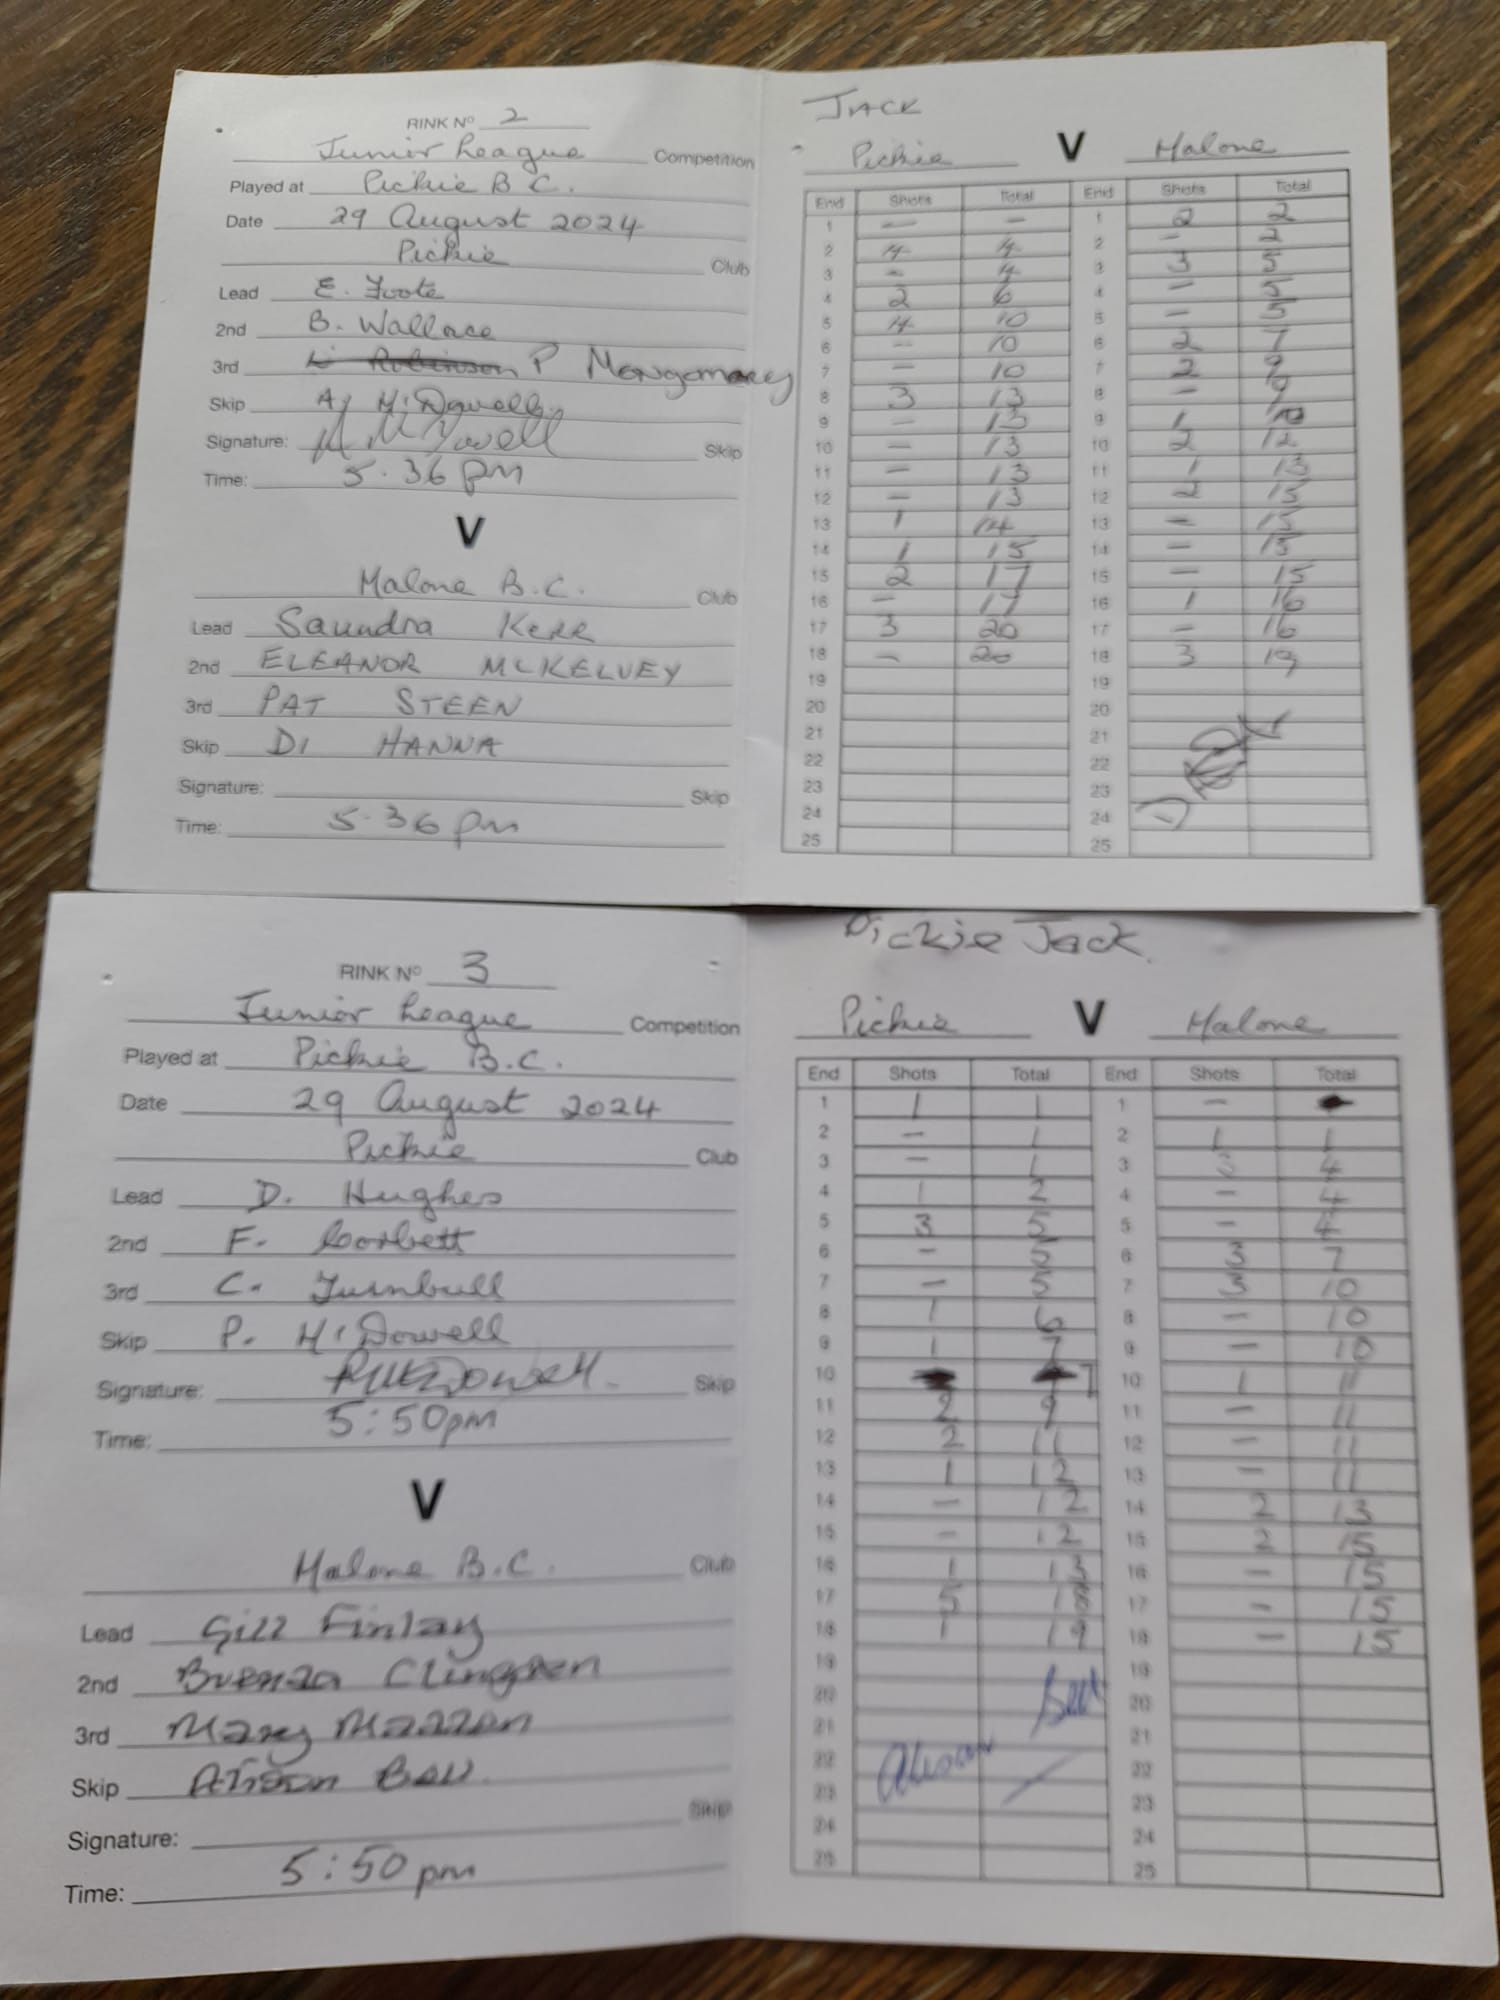 RINK Nº 2
Junior League Competition
Played at Pickie B C.
Date 29 August 2024
Pickie Club
Lead E. Foote
2nd B. Wallace
3rd L Robinson P Mongomery
Skip A. McDowell
Signature: M McDowell Skip
Time: 5.36 pm
V
Malone B.C. Club
Lead Saundra Kerr
2nd ELEANOR MCKELVEY
3rd PAT STEEN
Skip DI HANNA
Signature: Skip
Time: 5.36 pm
JACK
Pickie V Malone
End Shots Total End Shots Total
1 – – 1 2 2
2 4 4 2 – 2
3 – 4 3 3 5
4 2 6 4 – 5
5 4 10 5 – 5
6 – 10 6 2 7
7 – 10 7 2 9
8 3 13 8 – 9
9 – 13 9 1 10
10 – 13 10 2 12
11 – 13 11 1 13
12 – 13 12 2 15
13 1 14 13 – 15
14 1 15 14 – 15
15 2 17 15 – 15
16 – 17 16 1 16
17 3 20 17 – 16
18 – 20 18 3 19
19 19
20 20
21 21
22 22
23 23
24 24
25 25
RINK Nº 3
Junior League Competition
Played at Pickie B.C.
Date 29 August 2024
Pickie Club
Lead D. Hughes
2nd F. Corbett
3rd C. Turnbull
Skip P. McDowell
Signature: P McDowell. Skip
Time: 5:50pm
V
Malone B.C. Club
Lead Gill Finlay
2nd Brenda Clingden
3rd Mary
Skip Alison Bell
Signature: Skip
Time: 5:50 pm
Pickie Jack.
Pickie V Malone
End Shots Total End Shots Total
1 1 1 1 –
2 – 1 2 1 1
3 – 1 3 3 4
4 1 2 4 – 4
5 3 5 5 – 4
6 – 5 6 3 7
7 – 5 7 3 10
8 1 6 8 – 10
9 1 7 9 – 10
10 7 10 1 11
11 2 9 11 – 11
12 2 11 12 – 11
13 1 12 13 – 11
14 – 12 14 2 13
15 – 12 15 2 15
16 1 13 16 – 15
17 5 18 17 – 15
18 1 19 18 – 15
19 19
20 20
21 21
22 22
23 23
24 24
25 25
Alison Bell